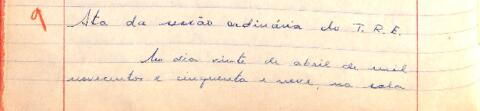 9
Ata da sessão ordinária do T.R.E.
Ao dia vinte de abril de mil
novecentos e cinquenta e nove, na sala